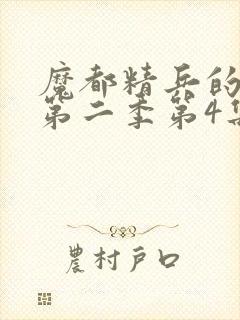 魔都精兵的
第二季第4集
農村戶口